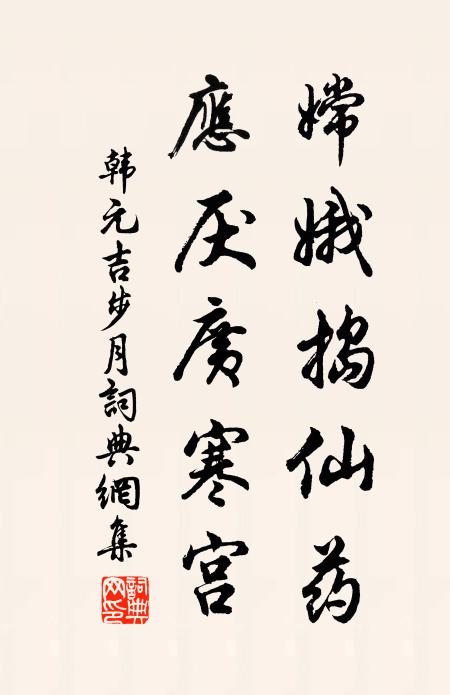 嫦娥捣仙药
應厌廣寒宫
韩元吉步月詞典網集
詞典網印